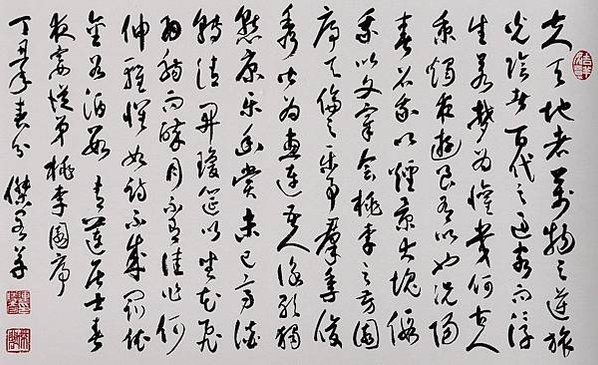 夫天地者萬物之逆旅
光陰者百代之過客而浮
生若夢為懽幾何古人
秉燭夜遊良有以也況陽
春召我以煙景大塊假
我以文章會桃李之芳園
序天倫之樂事群季俊
秀皆為惠連吾人詠歌獨
慙康樂幽賞未已高談
轉清開瓊筵以坐花飛
羽觴而醉月不有佳作何
伸雅懷如詩不成罰依
金谷酒數 青蓮居士春
夜宴從弟桃李園序
年春分 傑